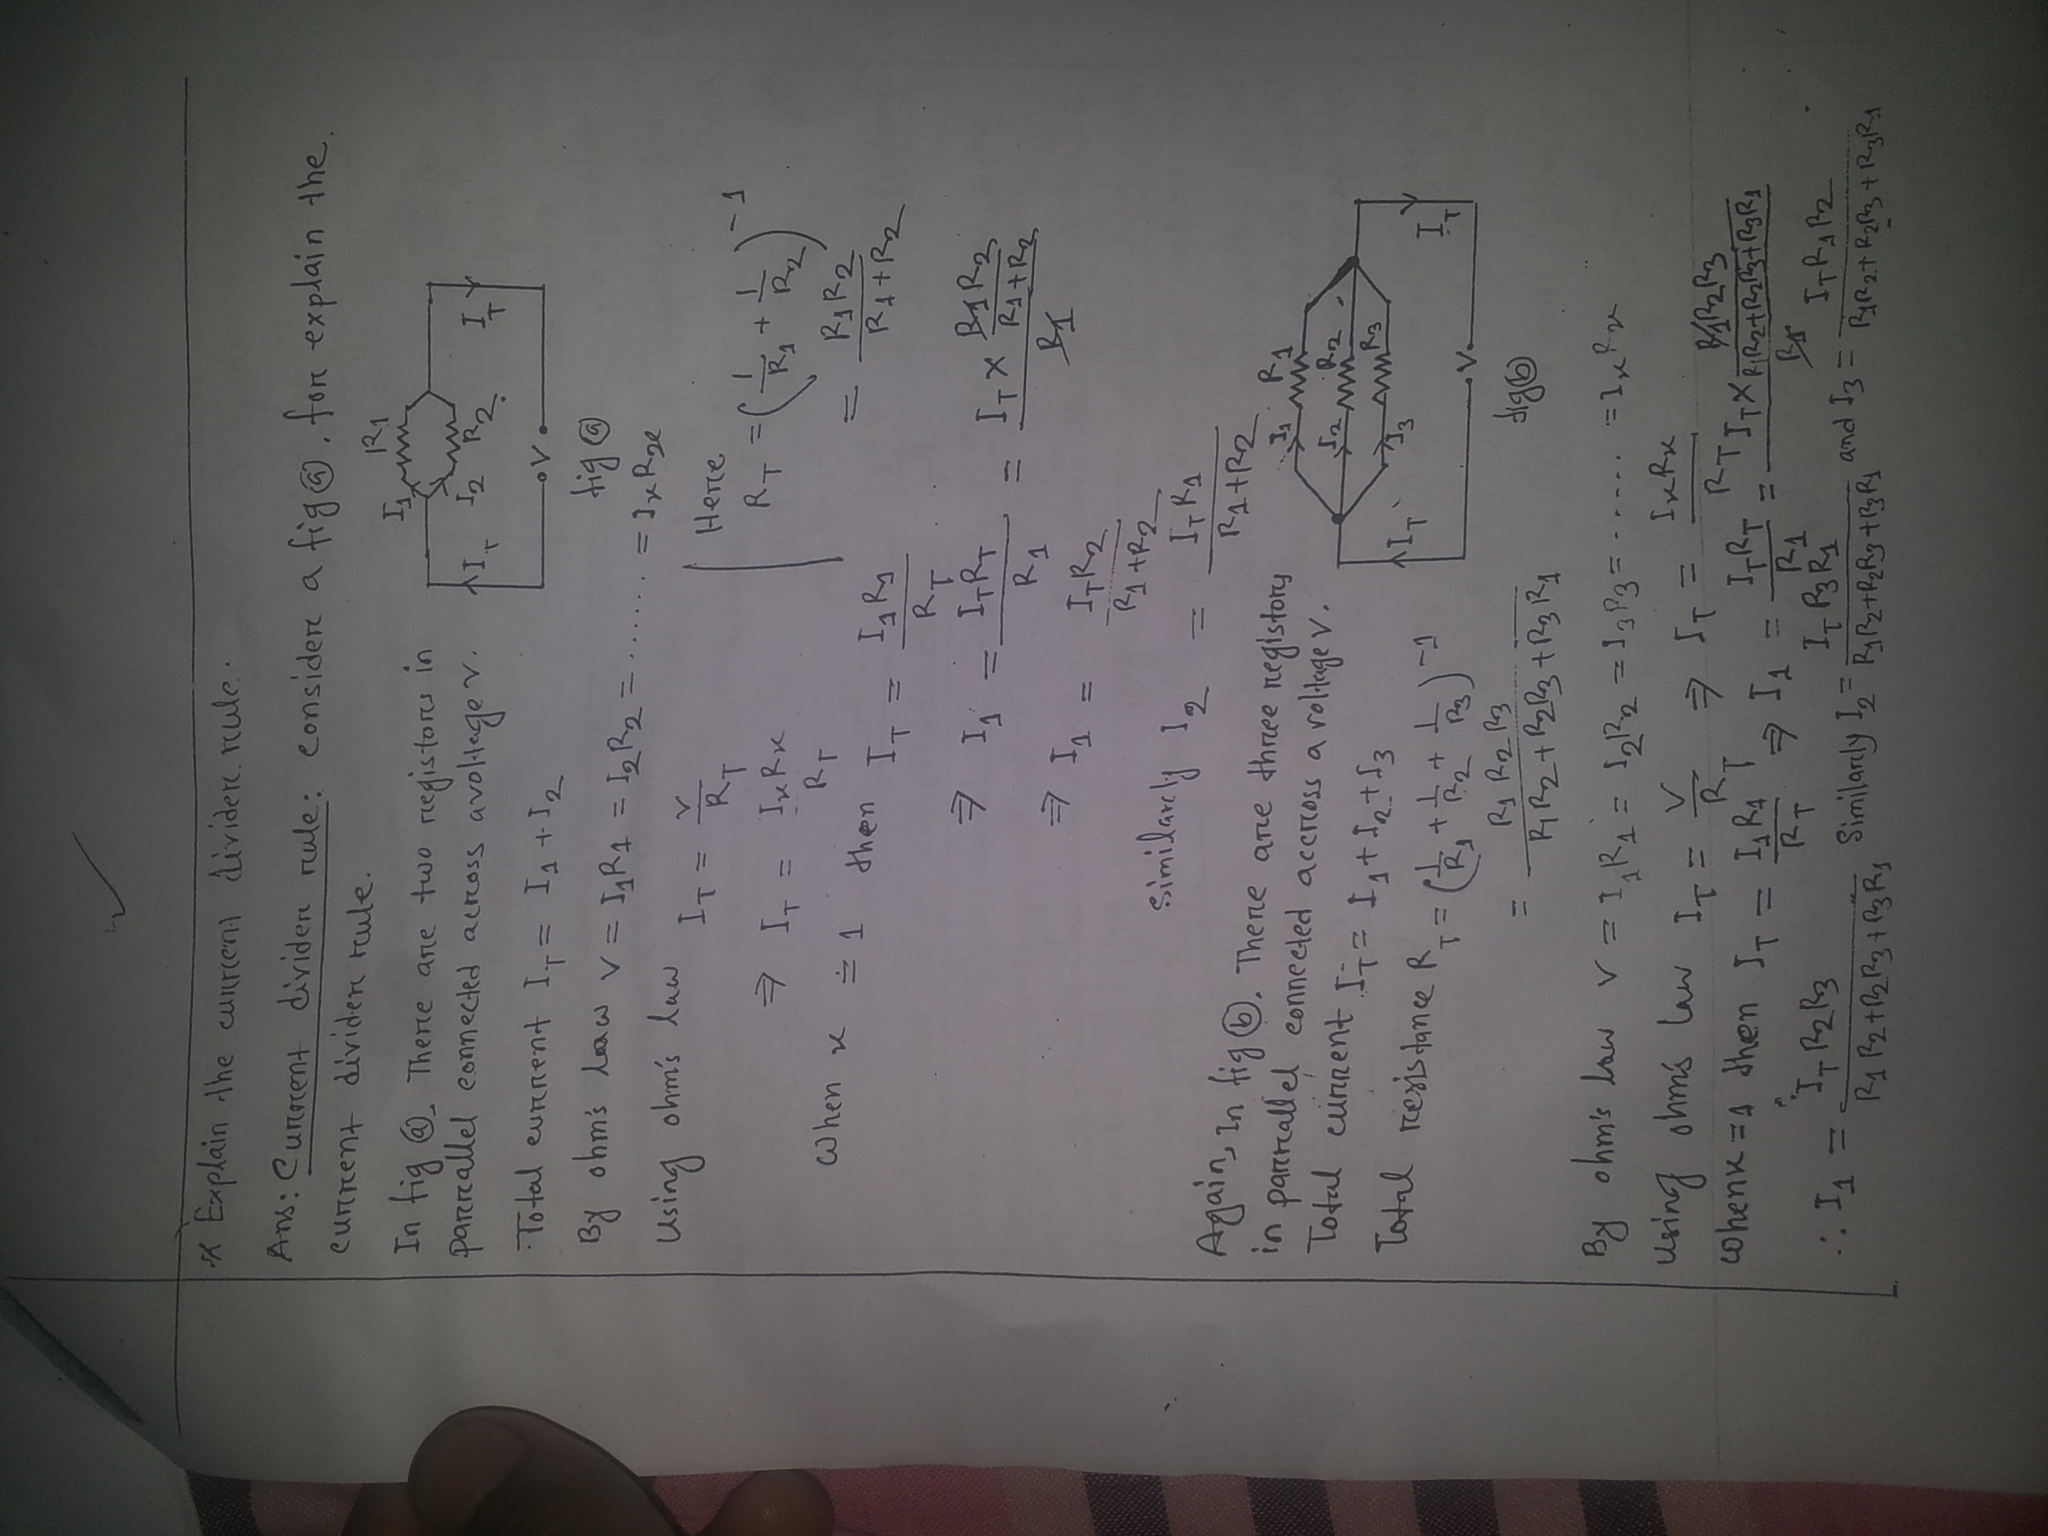 * Explain the current divider rule.
Ans: Current divider rule: consider a fig ⓐ, for explain the
current divider rule.
In fig ⓐ, There are two registors in
parrallel connected across a voltage V.
R1
I1
I2 R2
IT IT
V
fig ⓐ
Total current IT = I1 + I2
By ohm's law V = I1R1 = I2R2 = ...... = IxRx
Using ohm's law IT = V/RT
⇒ IT = IxRx/RT
Here
RT = (1/R1 + 1/R2)^-1
= R1R2/(R1+R2)
When x = 1 then IT = I1R1/RT
⇒ I1 = ITRT/R1 = (IT × R1R2/(R1+R2))/R1
⇒ I1 = ITR2/(R1+R2)
Similarly I2 = ITR1/(R1+R2)
Again, In fig ⓑ, There are three registors
in parrallel connected accross a voltage V.
Total current IT = I1+I2+I3
Total resistance RT = (1/R1 + 1/R2 + 1/R3)^-1
= R1R2R3/(R1R2+R2R3+R3R1)
I1 R1
I2 R2
I3 R3
IT IT
V
fig ⓑ
By ohm's law V = I1R1 = I2R2 = I3R3 = ...... = IxRx
Using ohm's law IT = V/RT ⇒ IT = IxRx/RT
When x = 1 then IT = I1R1/RT ⇒ I1 = ITRT/R1 = (IT × R1R2R3/(R1R2+R2R3+R3R1))/R1
∴ I1 = ITR2R3/(R1R2+R2R3+R3R1) Similarly I2 = ITR3R1/(R1R2+R2R3+R3R1) and I3 = ITR1R2/(R1R2+R2R3+R3R1)